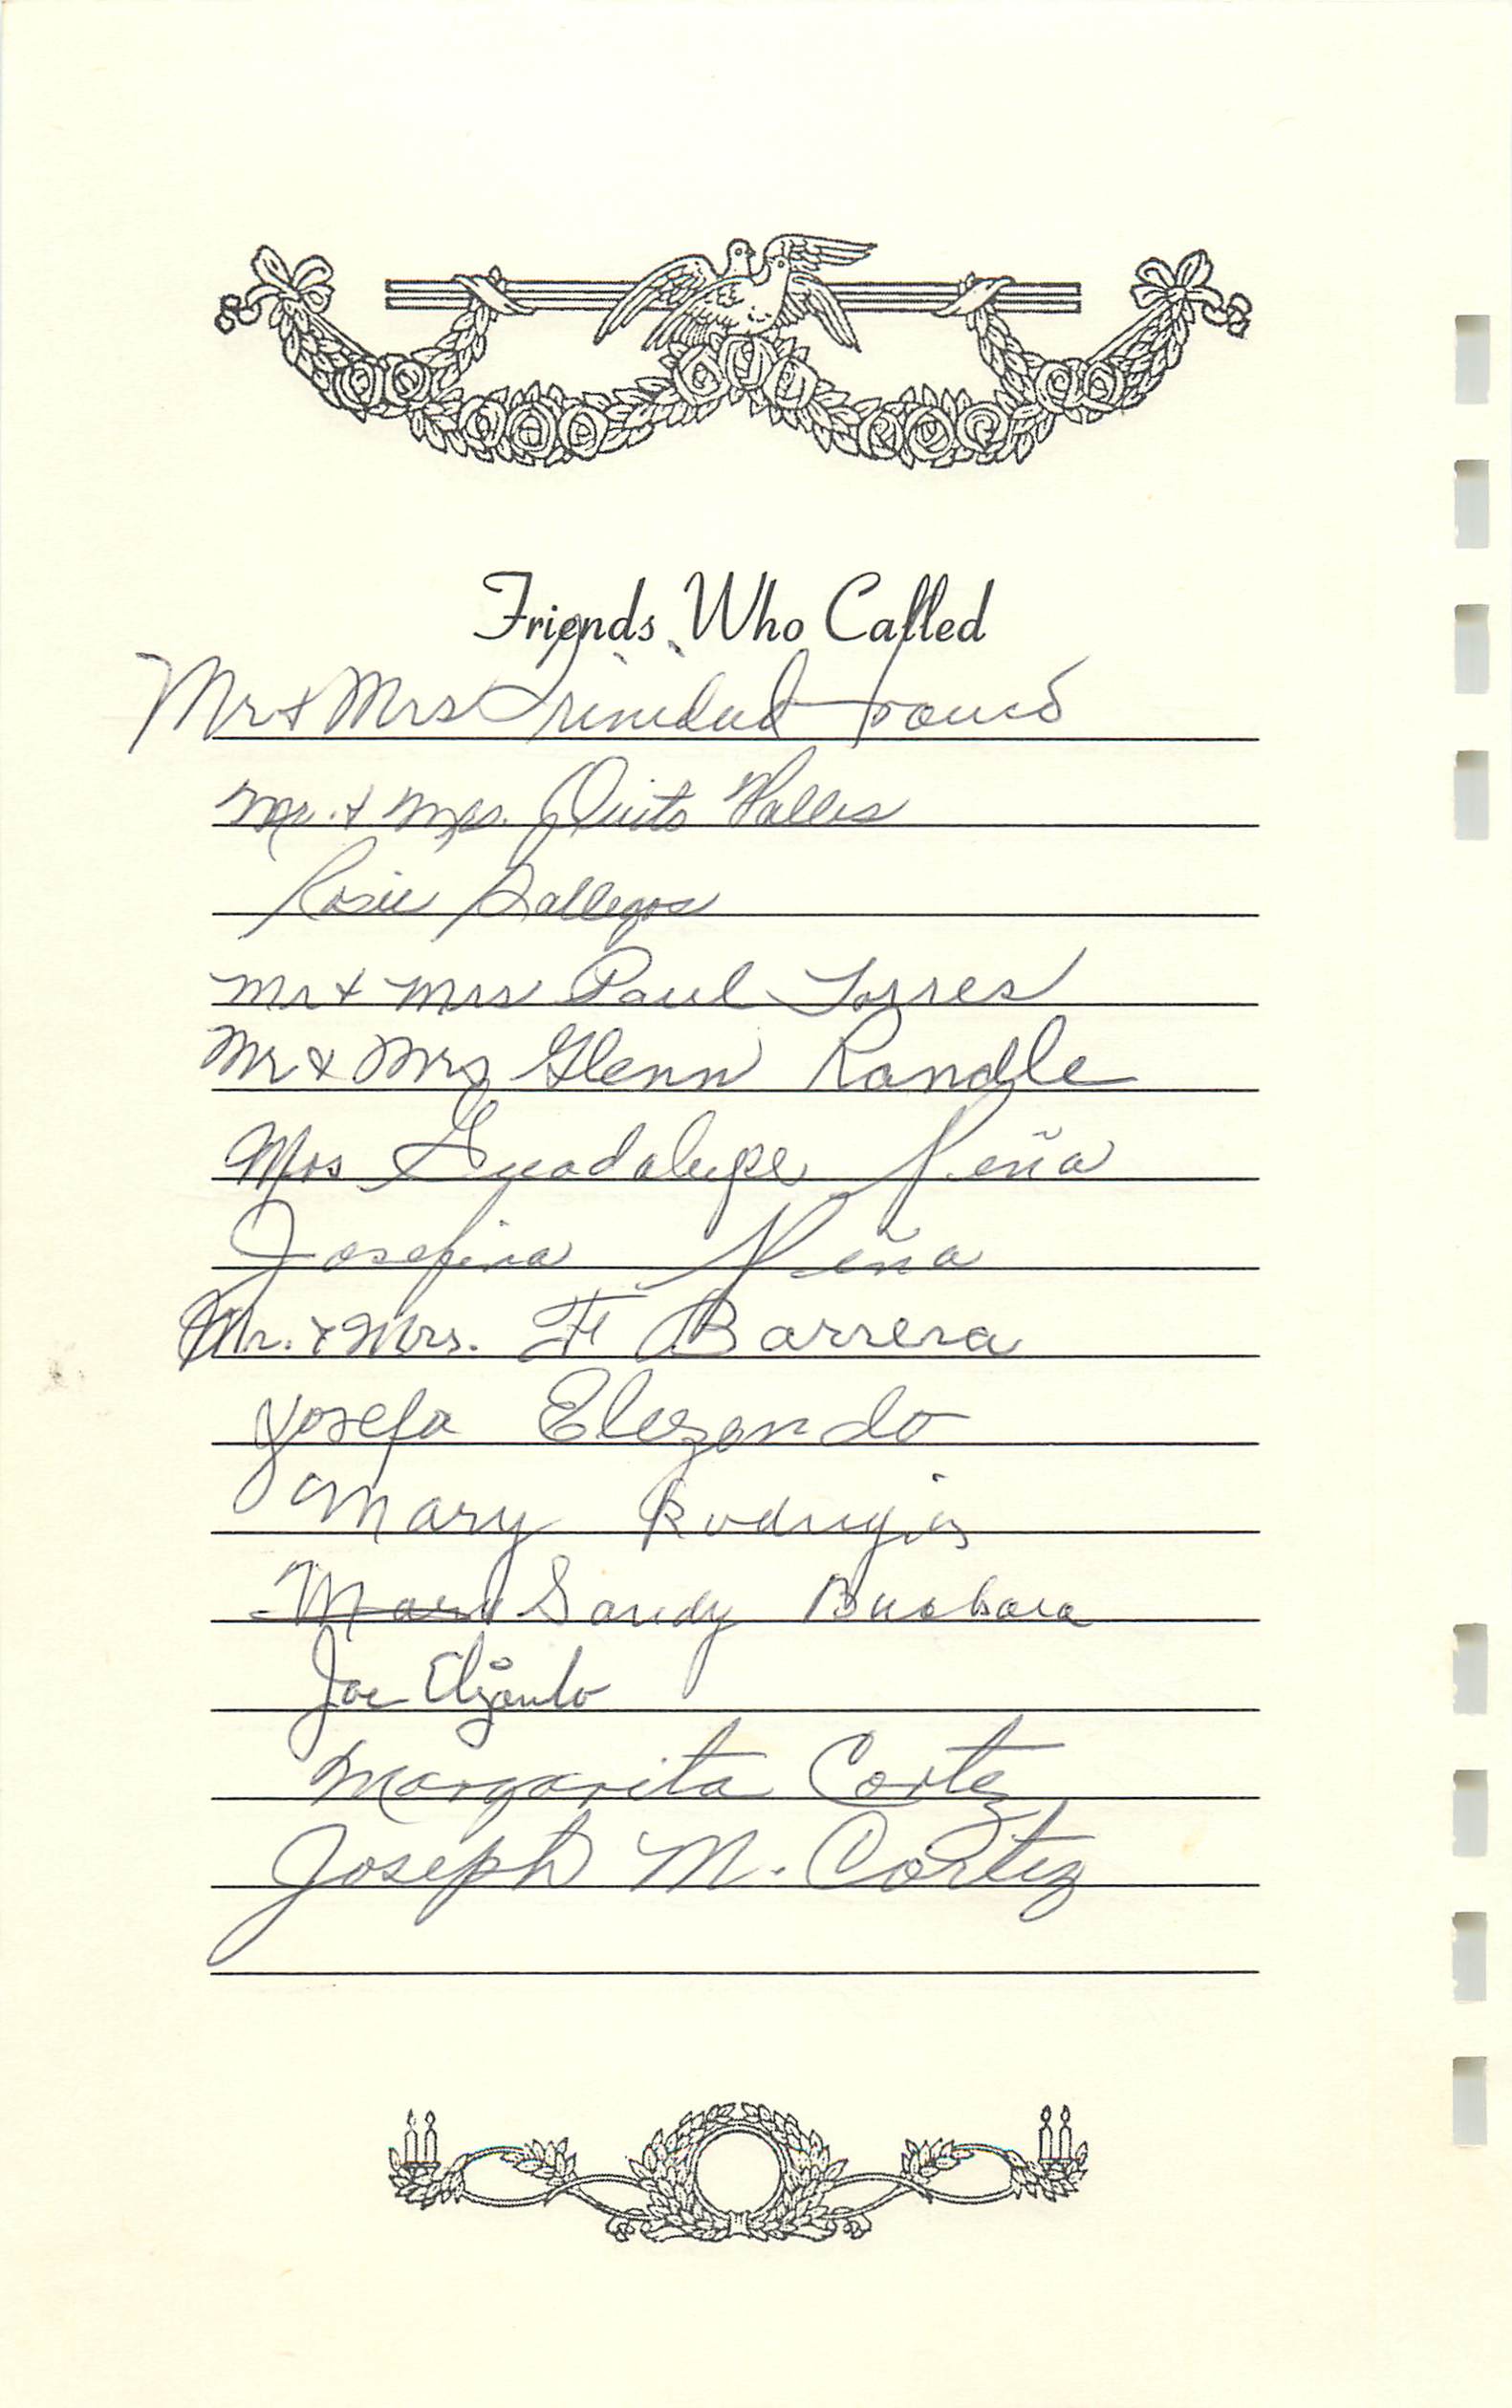 Friends Who Called
Mr & Mrs Trinidad Franco
Mr. & Mrs. Quito Valles
Rosie Gallegos
Mr & Mrs Paul Torres
Mr & Mrs Glenn Randle
Mrs Guadalupe Peña
Josefina Peña
Mr. & Mrs. F Barrera
Josefa Elizondo
Mary
Sandy
Joe Elizondo
Margarita Cortez
Joseph M. Cortez